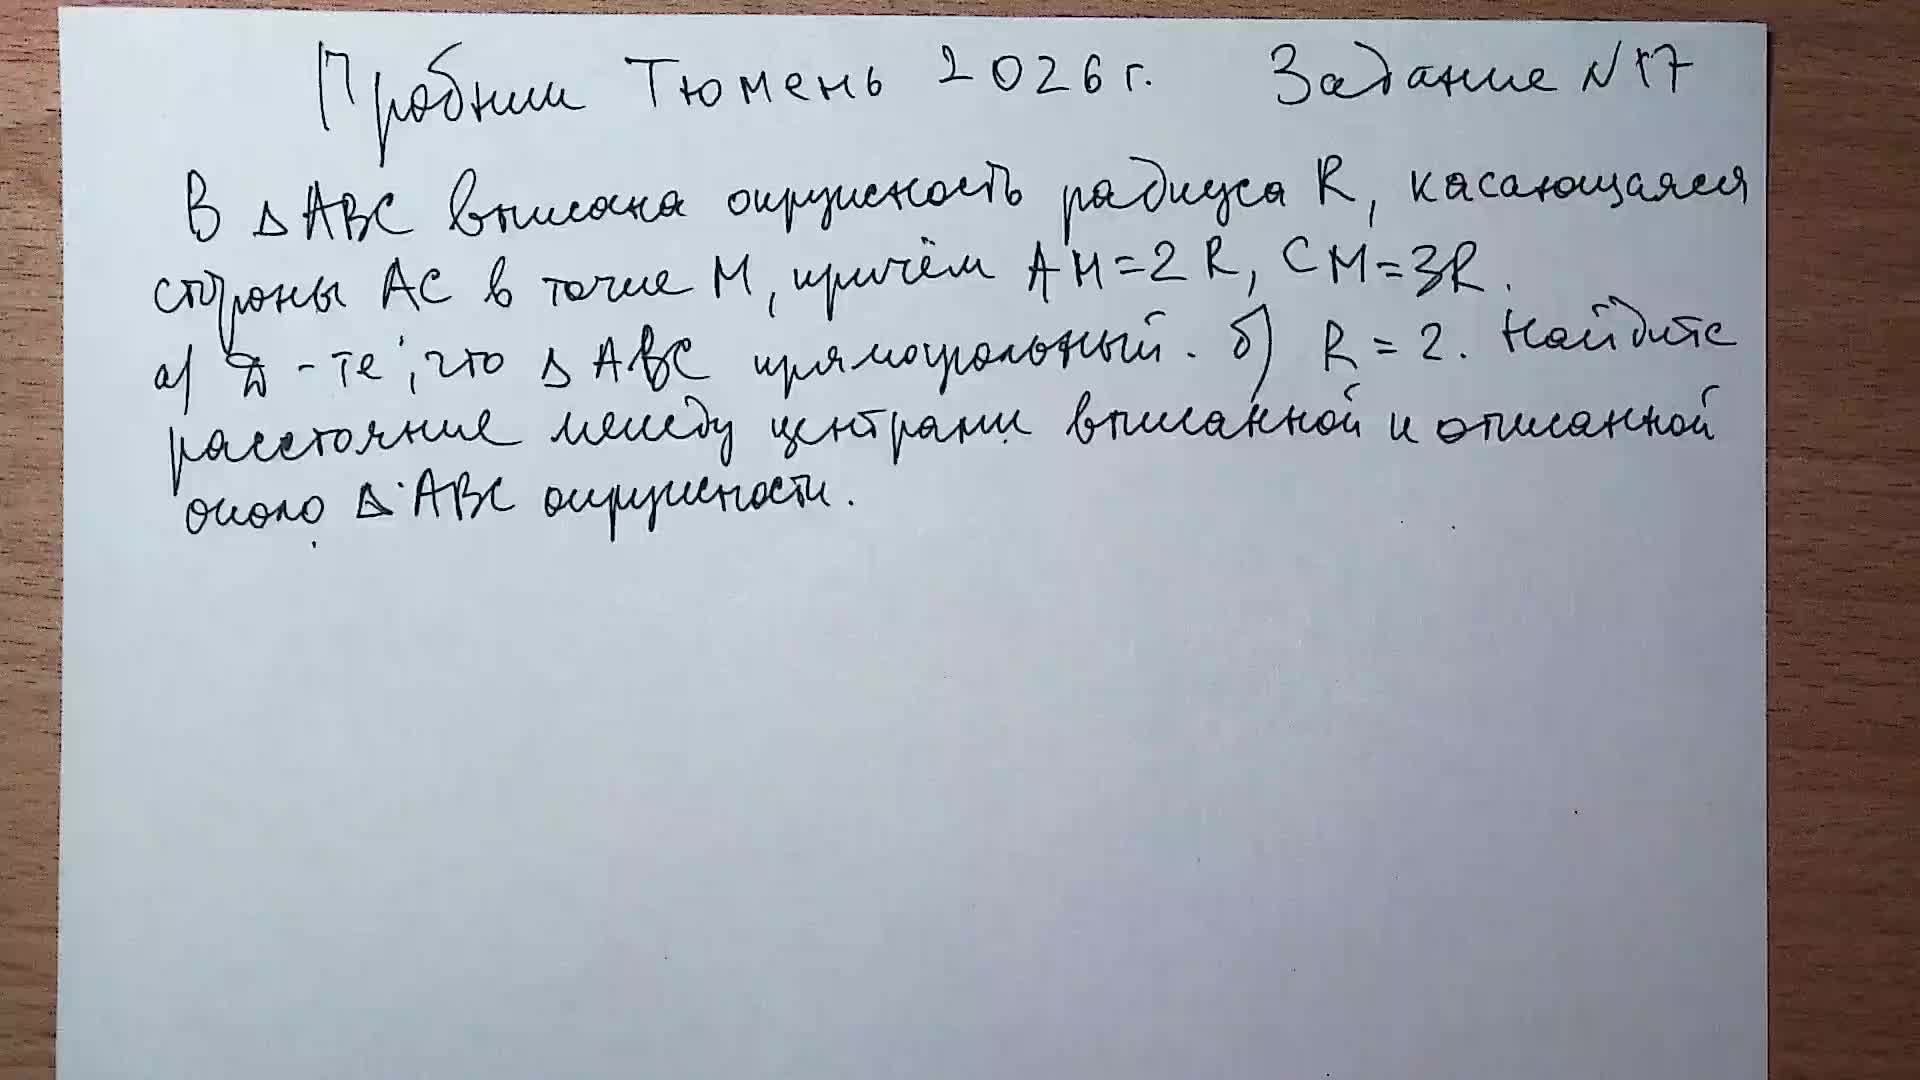 Пробник Тюмень 2026 г. Задание №17
В △ABC вписана окружность радиуса R, касающаяся
стороны AC в точке M, причём AM=2R, CM=3R.
а) Д-те, что △ABC прямоугольный. б) R=2. Найдите
расстояние между центрами вписанной и описанной
около △ABC окружности.